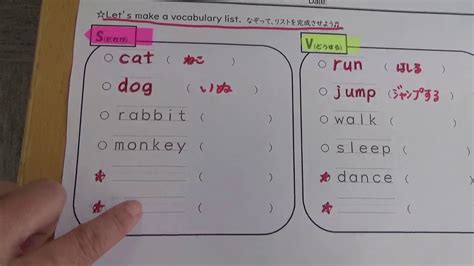 Date
☆Let's make a vocabulary list. なぞって、リストを完成させよう♫
S(だれが)
○ cat ( ねこ )
○ dog ( いぬ )
○ rabbit ( )
○ monkey ( )
☆ ( )
☆ ( )
V(どうする)
○ run ( はしる )
○ jump ( ジャンプする )
○ walk ( )
○ sleep ( )
☆ dance ( )
☆ ( )